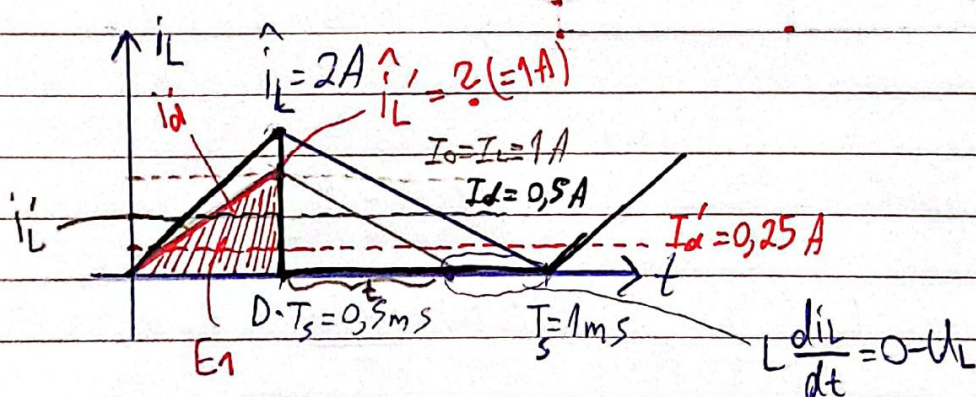 i_L
î_L = 2A
î_L' = ? (=1A)
i_d
I_0 = I_L = 1A
I_d = 0,5A
i_L'
I_d' = 0,25 A
t
t
D·T_s = 0,5ms
T_s = 1ms
E1
L di_L/dt = 0-U_L